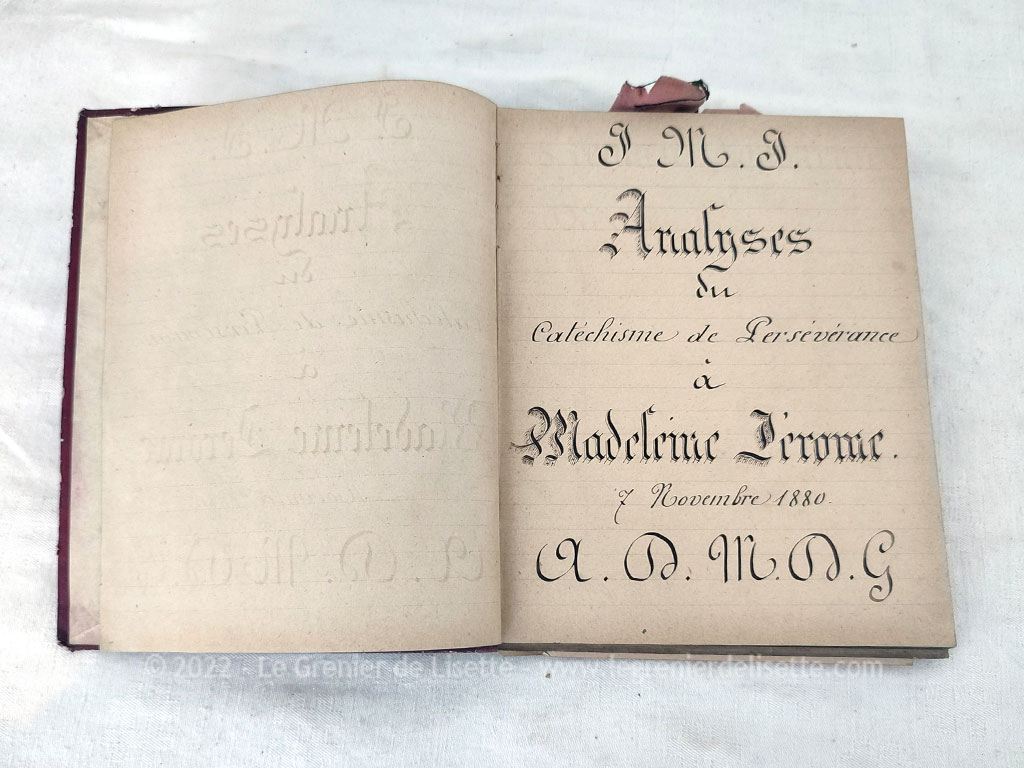 J M. J.
Analyses
du
Catéchisme de Persévérance
à
Madeleine Jérome.
7 Novembre 1880.
A. D. M. D. G
© 2022 - Le Grenier de Lisette - www.legrenierdelisette.com